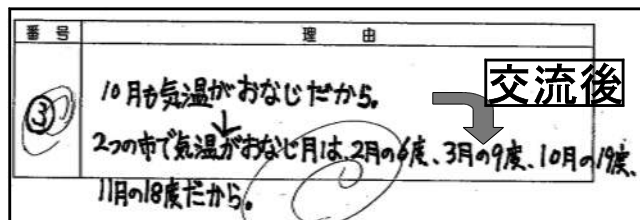 番 号 理 由
交流後
③ 10月も気温がおなじだから。
↓
2つの市で気温がおなじ月は、2月の6度、3月の9度、10月の19度、
11月の18度だから。